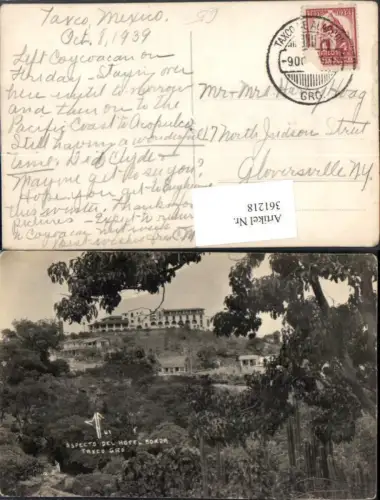 Taxco, Mexico.
Oct. 8, 1939
59
Left Coyoacan on
Friday - Staying over
here until to-morrow
and then on to the
Pacific Coast to Acapulco
Still having a wonderful
time. Did Clyde &
Maxine get to see you?
Hope you get to
this winter. Thank you
pictures - Expect to return
to Coyoacan next week
Best wishes from
Mr and Mrs Hoag
17 North Judson Street
Gloversville N.Y.
TAXCO DE ALARCON
GRO.
Artikel Nr.
361218
61
ASPECTO DEL HOTEL BORDA
TAXCO GRO